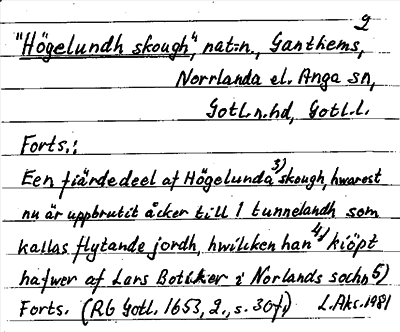 2
"Högelundh skough", nat:n., Ganthems,
Norrlanda el. Anga sn,
Gotl.n.hd, Gotl.l.
Forts.:
Een fiärdedeel af Högelunda 3) skough, hwarest
nu är uppbrutit åcker till 1 tunnelandh som
kallas flytande jordh, hwilcken han 4) kiöpt
hafwer af Lars Boticker i Norlands sochn 5)
Forts. (RG Gotl. 1653, 2, s. 30f.) L.Aks.1981